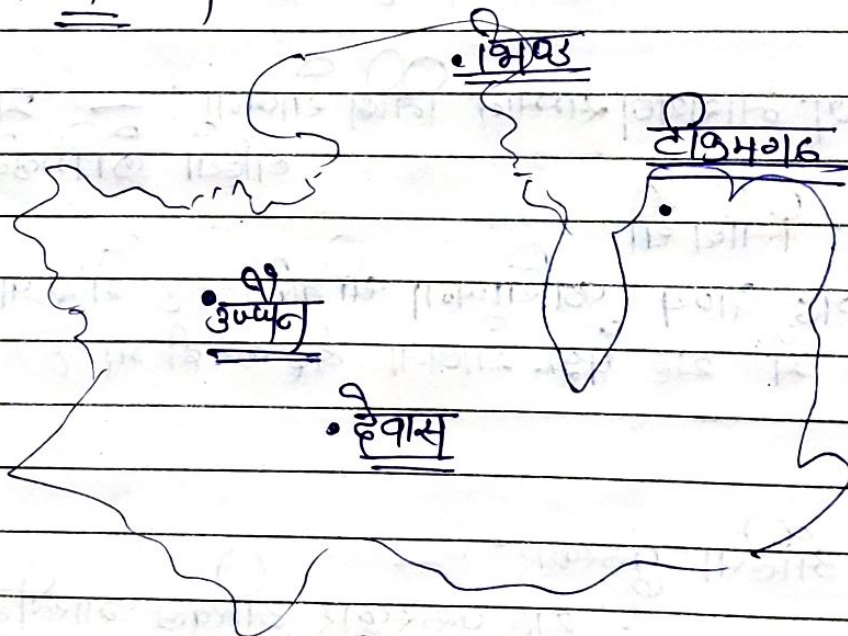 भिण्ड
टीकमगढ़
उज्जैन
देवास